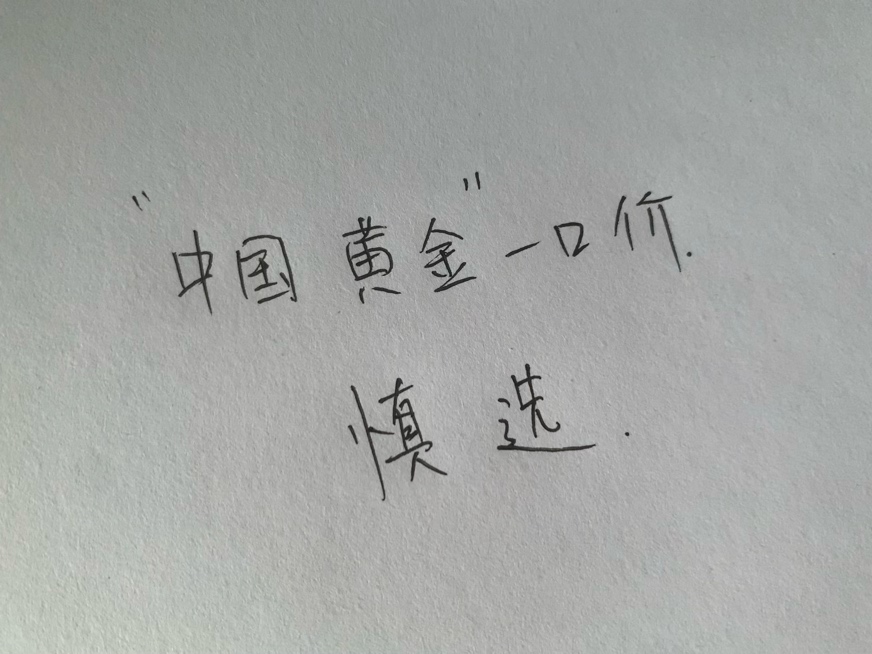 "中国黄金"一口价.
慎选.